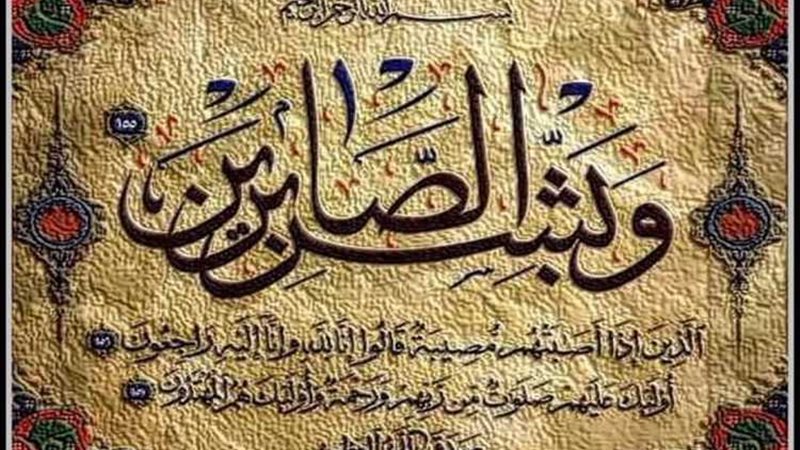 بسم الله الرحمن الرحيم
وَبَشِّرِ الصَّابِرِينَ ١٥٥
الَّذِينَ إِذَا أَصَابَتْهُم مُّصِيبَةٌ قَالُوا إِنَّا لِلَّهِ وَإِنَّا إِلَيْهِ رَاجِعُونَ ١٥٦
أُولَئِكَ عَلَيْهِمْ صَلَوَاتٌ مِّن رَّبِّهِمْ وَرَحْمَةٌ وَأُولَئِكَ هُمُ الْمُهْتَدُونَ ١٥٧
صدق الله العظيم